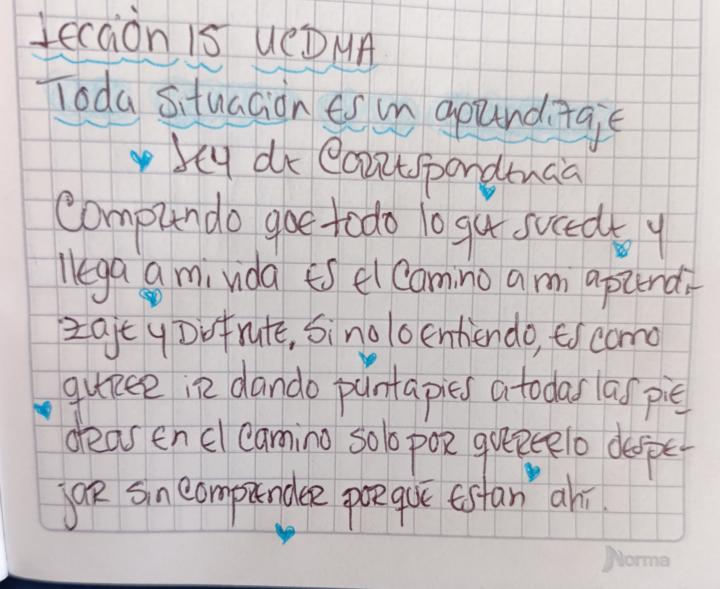 Lección 15 UCDMA
Toda Situación Es un aprendizaje
Ley de Correspondencia
Comprendo que todo lo que sucede y
llega a mi vida es el Camino a mi aprendi-
zaje y Disfrute, Si no lo entiendo, es como
querer ir dando puntapies a todas las pie
dras en el Camino solo por quererlo despe-
jar sin comprender porqué estan ahí.
Norma